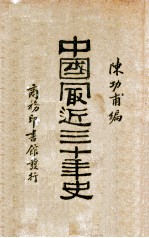 陳功甫編
中國最近三十年史
商務印書館發行